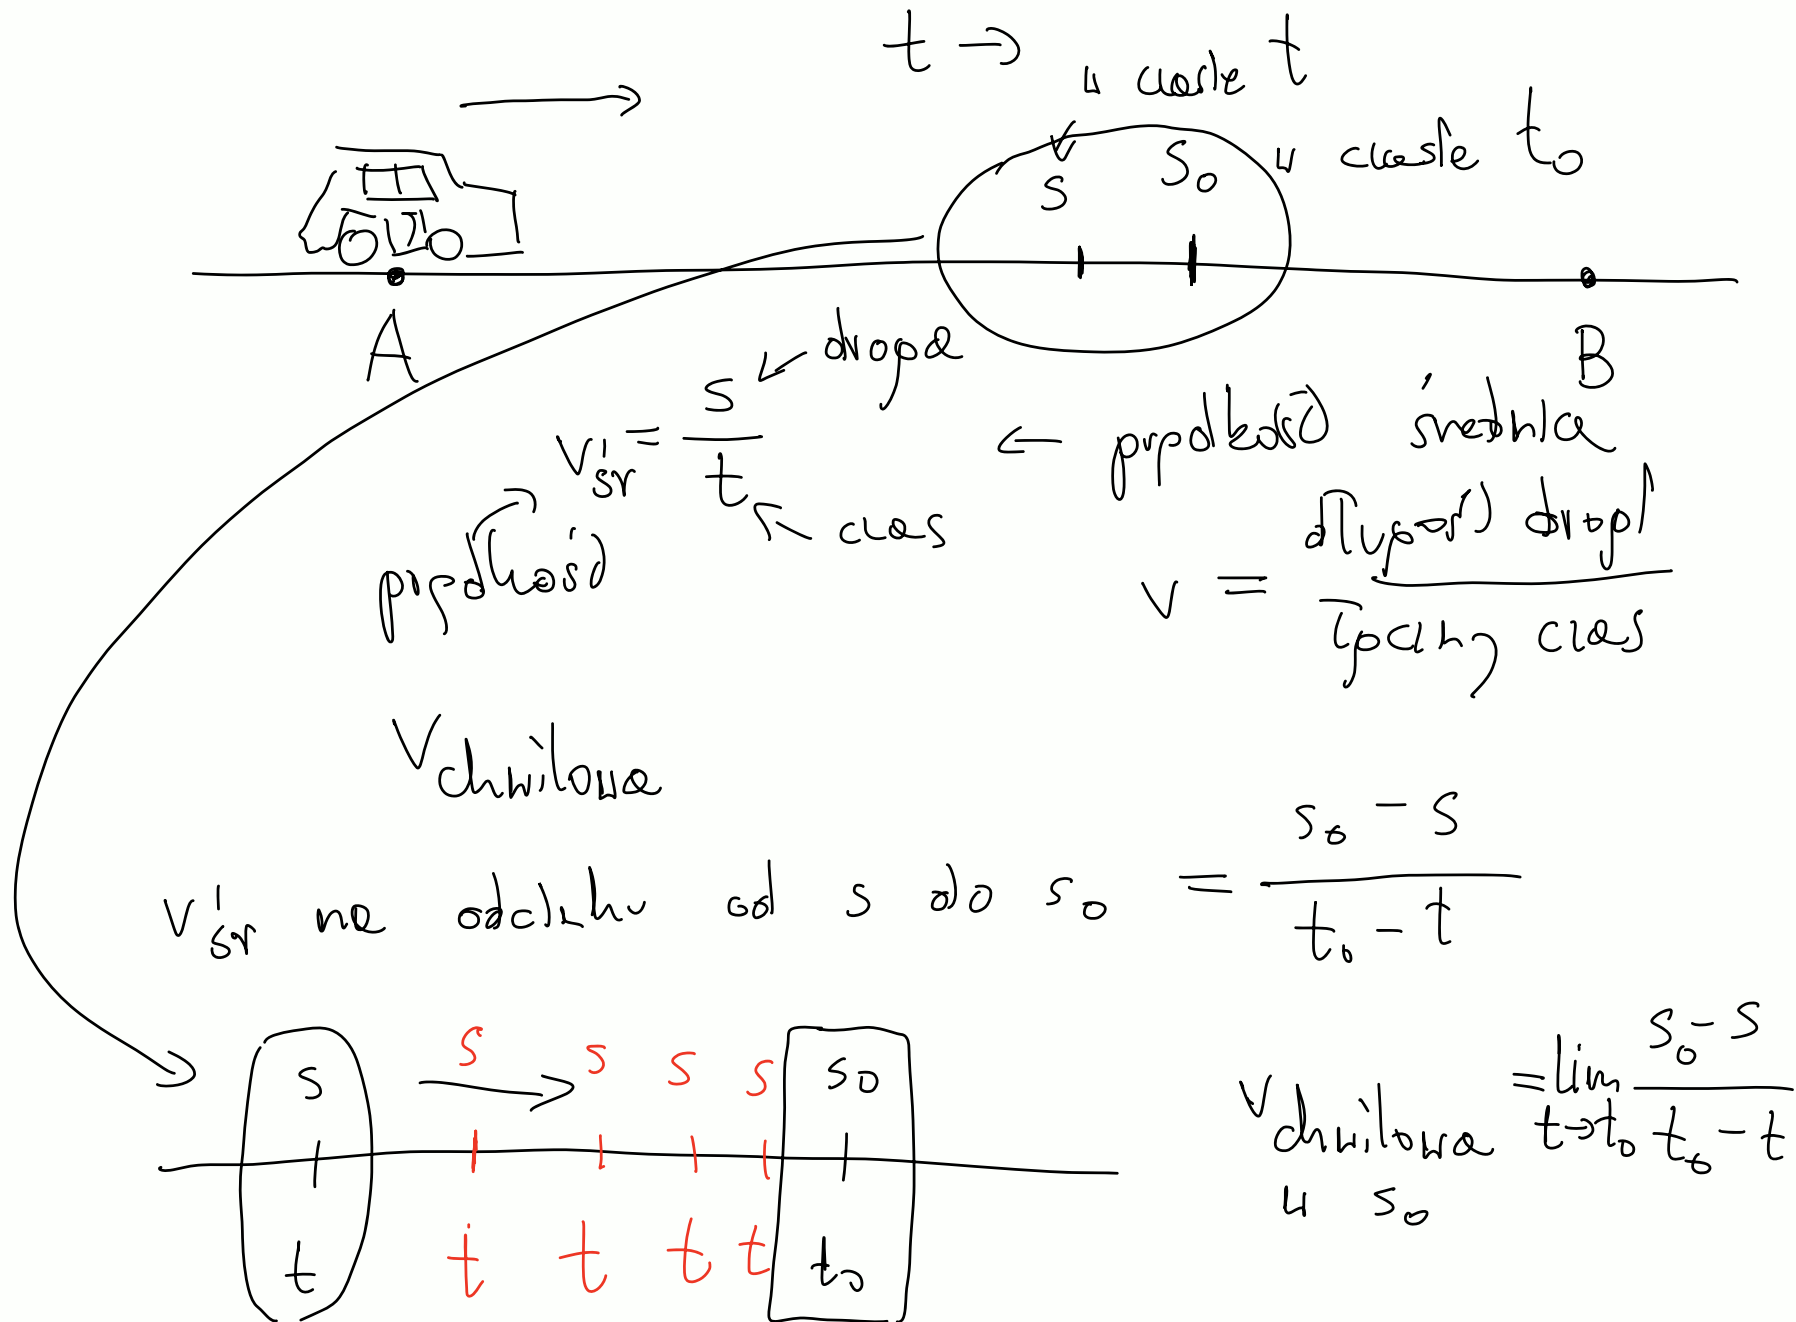 t →
w czasie t
w czasie t₀
s s₀
A B
v śr = s / t
droga
czas
prędkość
← prędkość średnia
v = długość drogi / łączny czas
v chwilowa
v śr na odcinku od s do s₀ = s₀ - s / t₀ - t
s s s s s s₀
t t t t t t₀
v chwilowa w s₀ = lim t→t₀ s₀ - s / t₀ - t